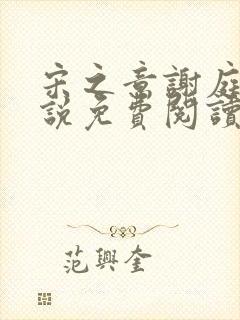 宋之章謝庭
說免費閱讀
范興奎